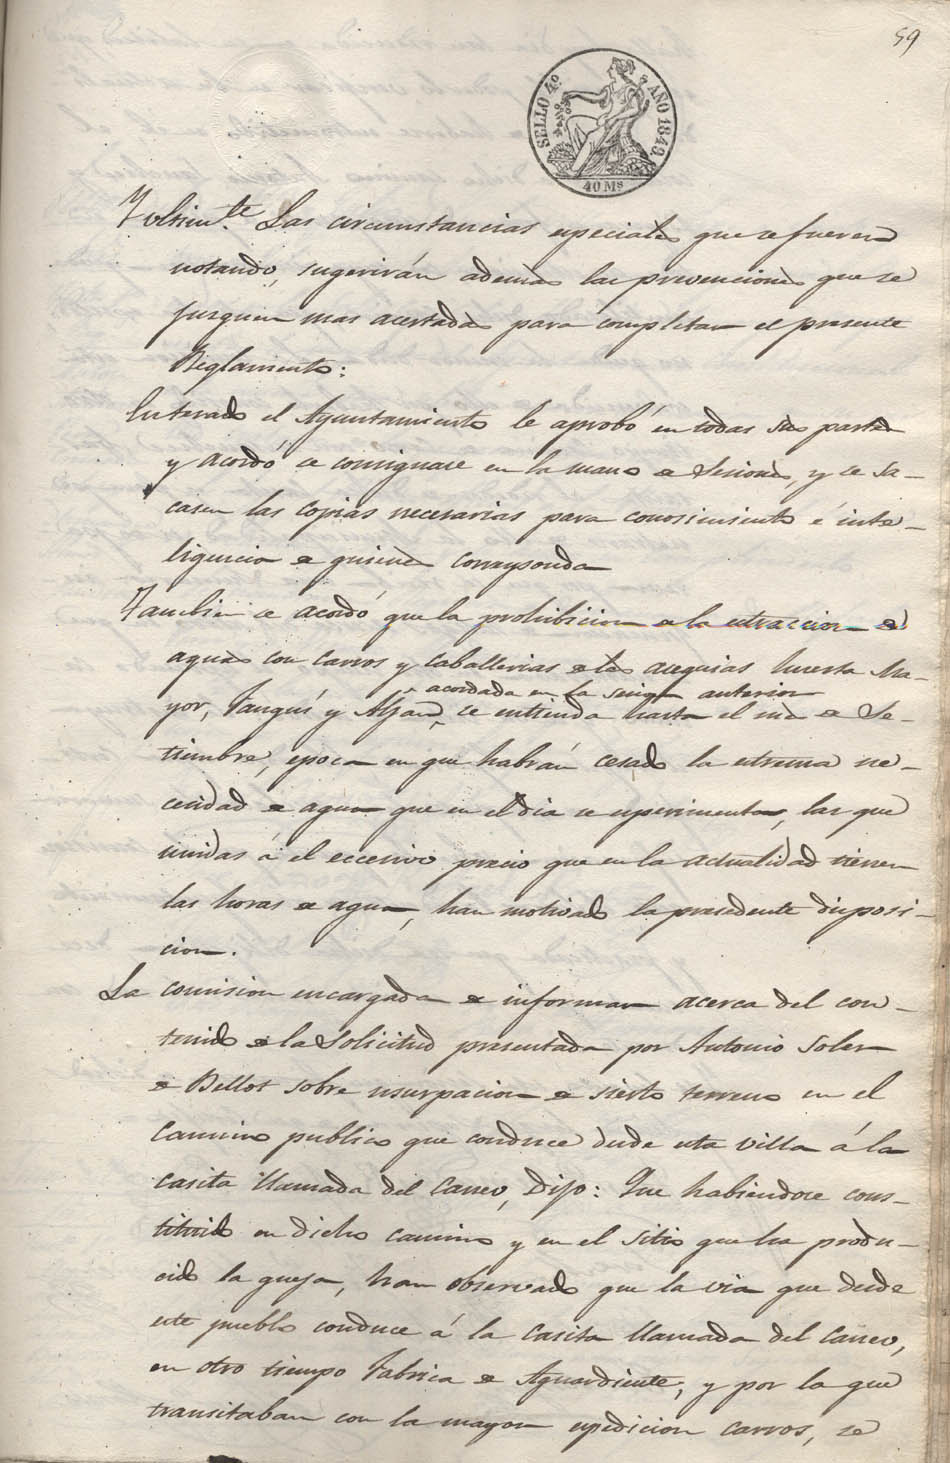 59
SELLO 4º AÑO 1849.
40 Ms
Ultim.te Las circumstancias especiales que se fueren
notando, sugerirán ademas las prevenciones que se
jusguen mas acertadas para completar el presente
Reglamento:
Enterado el Ayuntamiento le aprobó en todas sus partes
y acordó se consignase en la mano de Sesiones, y se sa-
casen las copias necesarias para conosimiento é inte-
ligencia de quienes corresponda
Tambien se acordó que la prohibicion de la estraccion de
aguas con carros y caballerias de las acequias huerta Ma-
acordada en la sesion anterior
yor, Fauquí y Aljau, se entienda hasta el mes de Se-
tiembre, epoca en que habrán cesado la estrema ne-
cesidad de agua que en el dia se esperimenta, las que
unidas á el eccesivo precio que en la actualidad tienen
las horas de agua, han motivado la presedente disposi-
cion.
La comision encargada de informar acerca del con-
tenido de la Solicitud presentada por Antonio Soler
de Bellot sobre usurpacion de sierto terreno en el
Camino publico que conduce desde esta villa á la
casita llamada del Carreo, Dijo: Que habiendose cons-
tituido en dicho camino y en el sitio que ha produ-
cido la queja, han observado que la via que desde
este pueblo conduce á la Casita llamada del Carreo,
en otro tiempo Fabrica de Aguardiente, y por la que
transitaban con la mayor espedicion carros, se